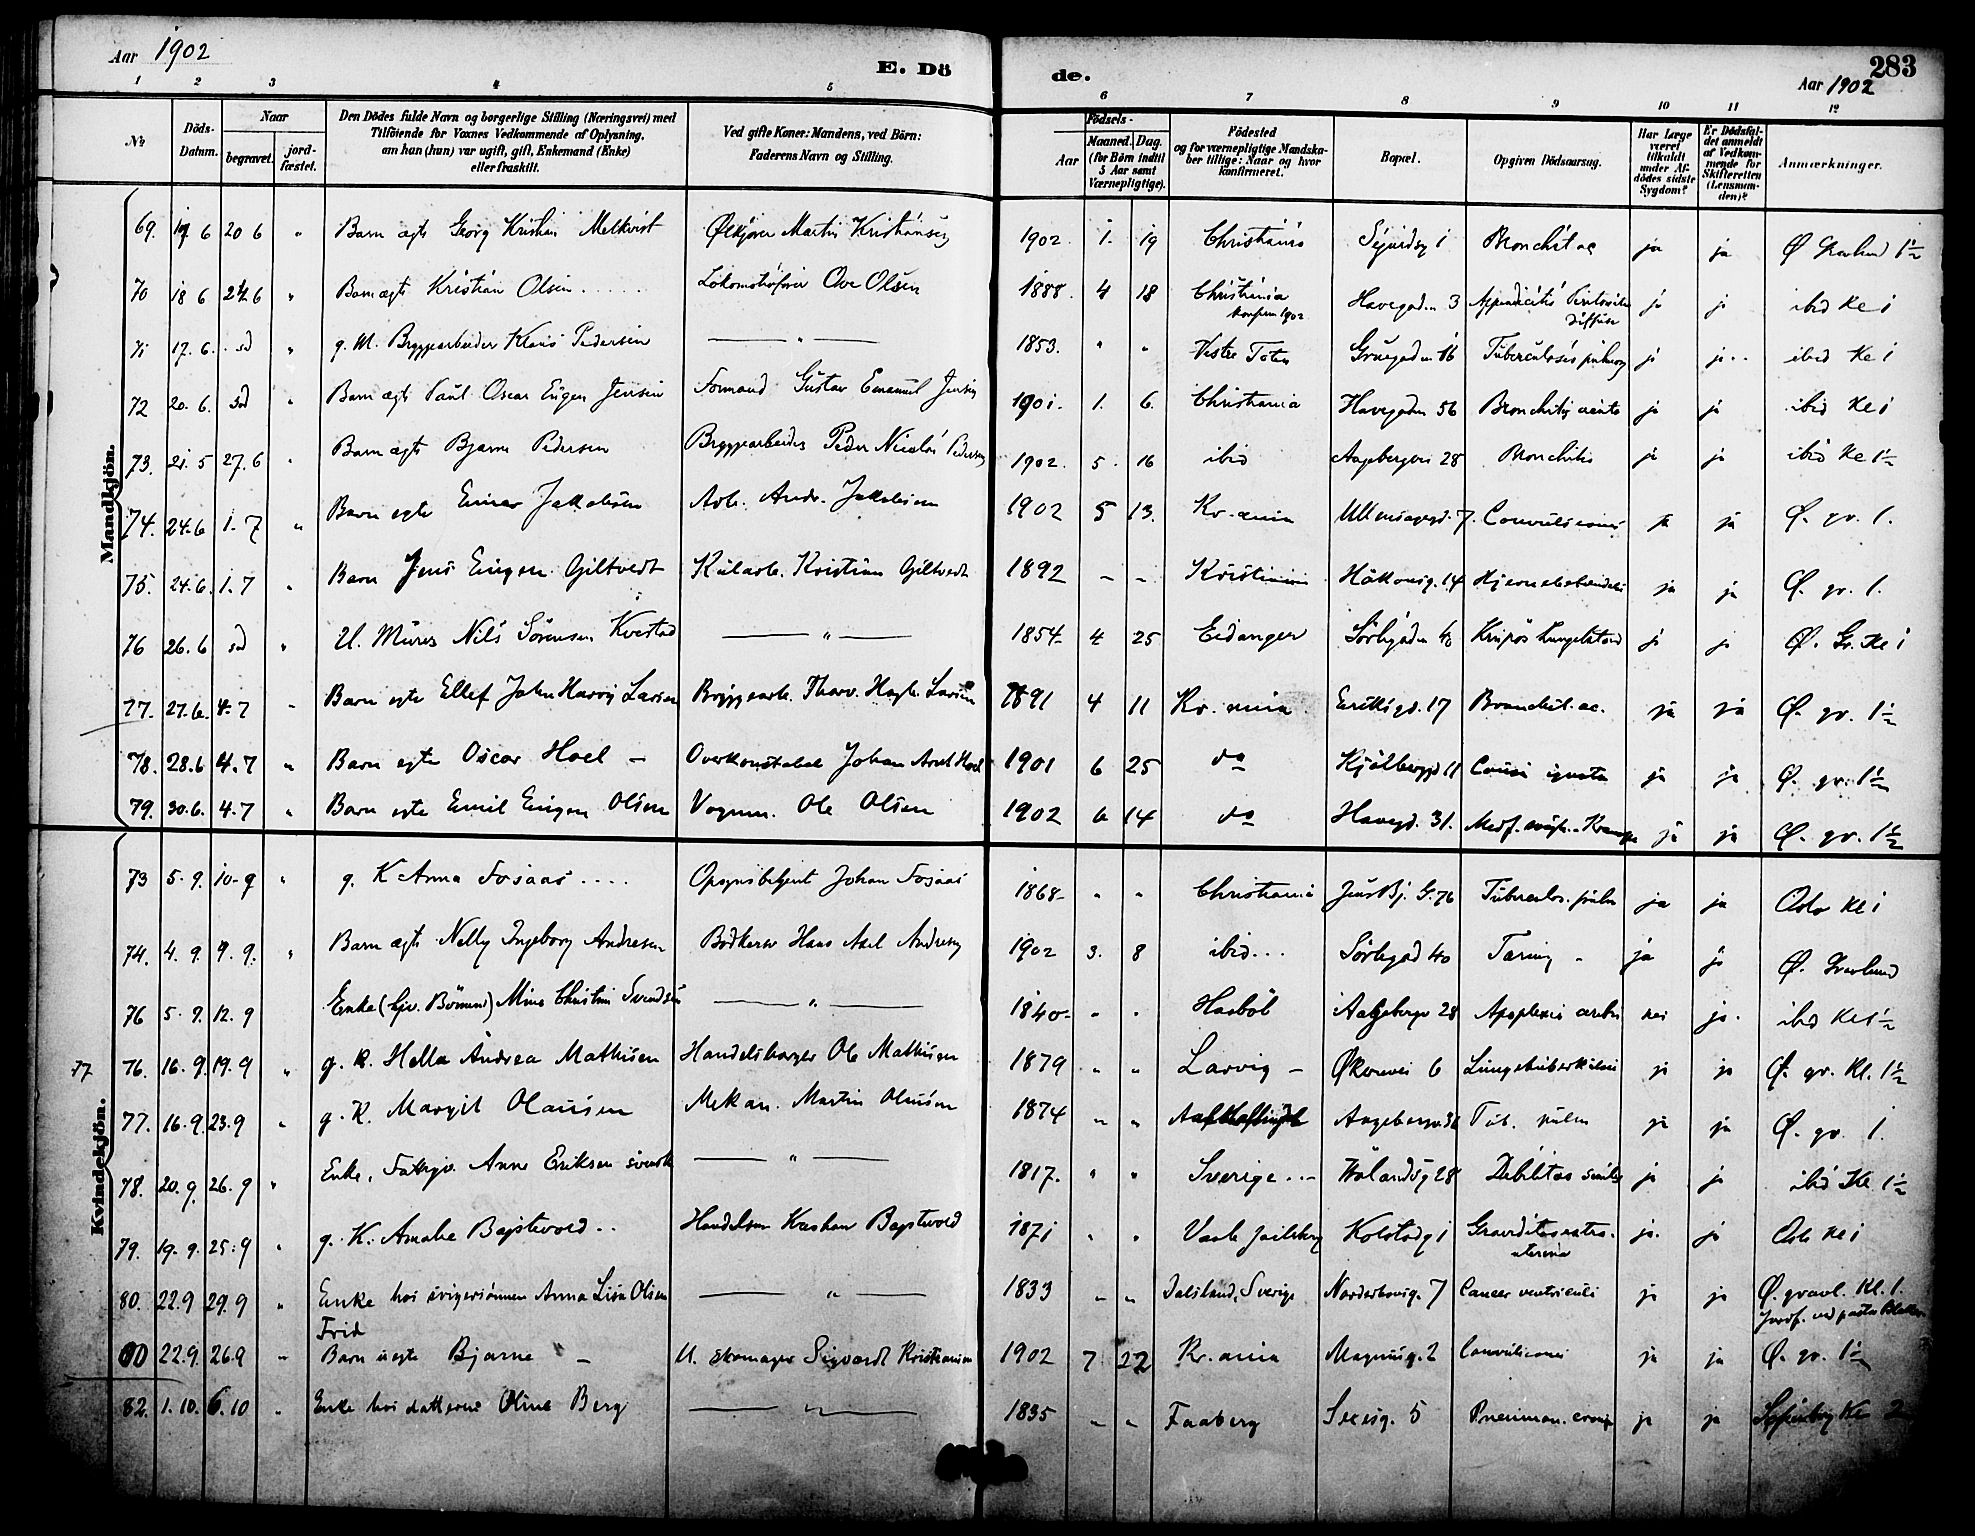 Aar 1902
E. Dö
de.
283
Aar 1902
1 2 3 4 5 6 7 8 9 10 11 12
No
Döds-Datum.
Naar
begravet.
jord-fæstet.
Den Dödes fulde Navn og borgerlige Stilling (Næringsvei) med
Tilföiende for Voxnes Vedkommende af Oplysning,
om han (hun) var ugift, gift, Enkemand (Enke)
eller fraskilt.
Ved gifte Koner: Mandens, ved Börn:
Faderens Navn og Stilling.
Födsels-
Aar
Maaned. Dag.
(for Börn indtil
5 Aar samt
Værnepligtige).
Födested
og for værnepligtige Mandska-
ber tillige: Naar og hvor
konfirmeret.
Bopæl.
Opgiven Dödsaarsag.
Har Læge
været
tilkaldt
under Af-
dödes sidste
Sygdom?
Er Dödsfal-
det anmeldt
af Vedkom-
mende for
Skifteretten
(Lensman-
den)?
Anmærkninger.
Mandkjön.
69. 19 6 20 6 " Barn ægte Georg Kristian Melkvist Ølkjører Martin Kristiansen 1902. 1. 19 Christiania Sigurdsg 1 Bronchit ac ja ja Ø Gravlund 1½
70 18 6 24 6 " Barn ægte Kristian Olsen Lokomotivfører Ove Olsen 1888. 4 18 Christiania Konfirm 1902 Havegaden 3 Appendicitis Peritonitis Diffusa ja ja ibid Kl 1
71 17. 6. sd " g. M. Bryggearbeider Klaus Pedersen — " — 1853. " " Vestre Toten Gruegaden 16 Tuberculosis pulmon ja ja ibid Kl 1
72 20. 6. sd " Barn ægte Paul Oscar Eugen Jensen Formand Gustav Emanuel Jensen 1901. 1. 6. Christiania Havegaden 56 Bronchitis acuta ja ja ibid Kl 1
73. 21. 5 27. 6 " Barn ægte Bjarne Pedersen Bryggearbeider Peder Nicolai Pedersen 1902. 5. 16 ibid Aagebergvei 28 Bronchitis ja ja ibid Kl 1½
74. 24. 6 1. 7 " Barn egte Einar Jakobsen Arb. Andr. Jakobsen 1902 5 13. Kr.ania Ullensagergd. 7. Convulsiones ja ja Ø. gr. 1.
75. 24. 6. 1. 7 " Barn Jens Eugen Giltvedt Kularb. Kristian Giltvedt 1892 – – Kristiania Håkonsg. 14 ja ja Ø. gr. 1.
76 26. 6 sd " U. Murer Nils Sörensen Kvestad — " — 1854 4 25 Eidanger Sörligaden 40 Krupös Lungebetænd ja ja Ø. Gr. Kl 1
77. 27. 6. 4. 7 " Barn egte Ellef John Harry Larsen Bryggearb. Larsen 1891 4 11 Kr.ania Eriksgd. 17 Bronchit. ac. ja ja Ø. gr. 1½
78. 28. 6 4. 7 " Barn egte Oscar Hoel – Overkonstabel Johan Hoel 1901 6 25 do Kjölberggd 11 Causa ignota ja ja Ø. gr. 1½
79. 30. 6. 4. 7 " Barn egte Emil Eugen Olsen Vognm. Ole Olsen 1902 6 14 do Havegd. 31. Medf. ja ja Ø. gr. 1½
Kvindekjön.
73 5. 9. 10. 9 " g. K Anna Fosaas Opsynsbetjent Johan Fosaas 1868 " " Christiania Jens Bj. G. 76 Tuberculos. pulm ja ja Oslo Kl 1
74. 4. 9. 9. 9. " Barn ægte Nelly Ingeborg Andresen Bödkersv Hans Axel Andresen 1902 3. 8 ibid Sörligad 40 Tæring ja ja Ø. Gravlund
76 5. 9. 12. 9 Enke Mina Christin Svendsen — " — 1840 " " Hasböl Aagebergv 28 Apoplexia cerebri nei ja. ibid Kl 1½
77 76. 16. 9. 19. 9 " g. K. Hella Andrea Mathisen Handelsborger Ole Mathisen 1879 " " Larvig – Økernvei 6 Lungetuberkulose ja ja Ø. gr. Kl. 1½
77. 16. 9. 23. 9 " g. K. Margit Olausen Mekan. Martin Olausen 1874 " " Aagebergv. Tub. pulm ja ja Ø. gr 1.
78. 20. 9. 26. 9 " Enke, Fattigv. Anne Eriksen svensk — " — 1817. " " Sverige Hölandsg 28 Debilitas senilis ja ja ibid Kl 1½
79. 19. 9. 25. 9 " g. K. Amalie Bagstevold Handelsm Kristian Bagstevold 1871 " " Vaale Jarlsberg Kolstadg 1 Graviditas extrauterina ja. ja Oslo Kl 1
80. 22. 9 29. 9 " Enke hos svigersönnen Anna Lisa Olsen — " — 1833 " " Dalsland, Sverige Norderhovsg. 7 Cancer ventriculi ja ja Ø. gravl. Kl. 1. Jordf. ved pastor
Frid
80 22. 9. 26. 9 " Barn uegte Bjarne – U. Skomager Sigvardt Kristiansen 1902 7 22 Kr.ania Magnusg. 2 Convulsiones ja ja Ø. gr. 1½
82. 1. 10. 6. 10 " Enke hos datteren Oline Berg — " — 1835 " " Faaberg Sexesg. 5 Pneumon. croup ja ja Kl 2